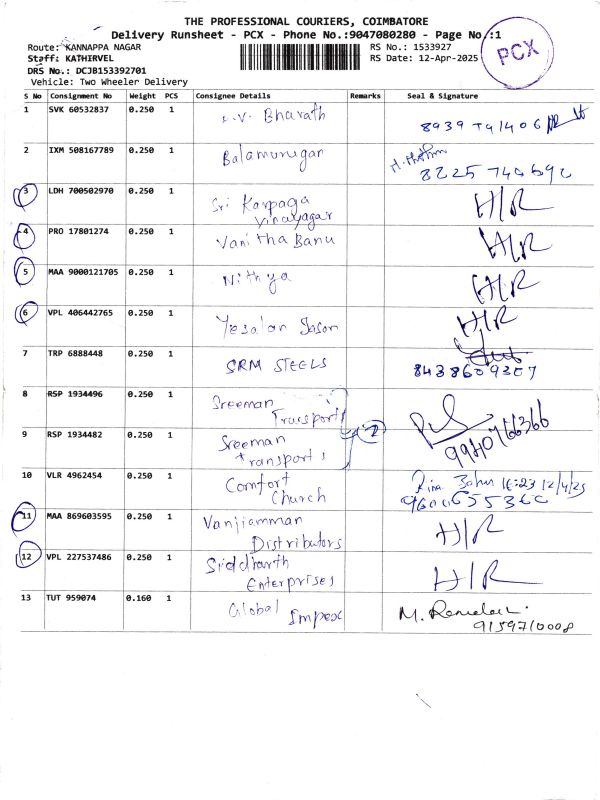 THE PROFESSIONAL COURIERS, COIMBATORE
Delivery Runsheet - PCX - Phone No.:9047080280 - Page No.:1
Route: KANNAPPA NAGAR
RS No.: 1533927
Staff: KATHIRVEL
RS Date: 12-Apr-2025
PCX
DRS No.: DCJB153392701
Vehicle: Two Wheeler Delivery
S No Consignment No Weight PCS Consignee Details Remarks Seal & Signature
1 SVK 60532837 0.250 1 Bharath
2 IXM 508167789 0.250 1 Balamurugan
3 LDH 700502970 0.250 1 Sri Karpaga H/R
Vinayagar
4 PRO 17801274 0.250 1 Vanitha Banu H/R
5 MAA 9000121705 0.250 1 Nithya H/R
6 VPL 406442765 0.250 1 Jason H/R
7 TRP 6888448 0.250 1 SRM STEELS
8438609307
8 RSP 1934496 0.250 1 Sreeman
Transports
2
9 RSP 1934482 0.250 1 Sreeman
transports
9940766366
10 VLR 4962454 0.250 1 Comfort 16:23 12/4/25
Church
11 MAA 869603595 0.250 1 Vanjiamman H/R
Distributors
12 VPL 227537486 0.250 1 Siddharth H/R
Enterprises
13 TUT 959074 0.160 1 Global Impex M.
9159710008